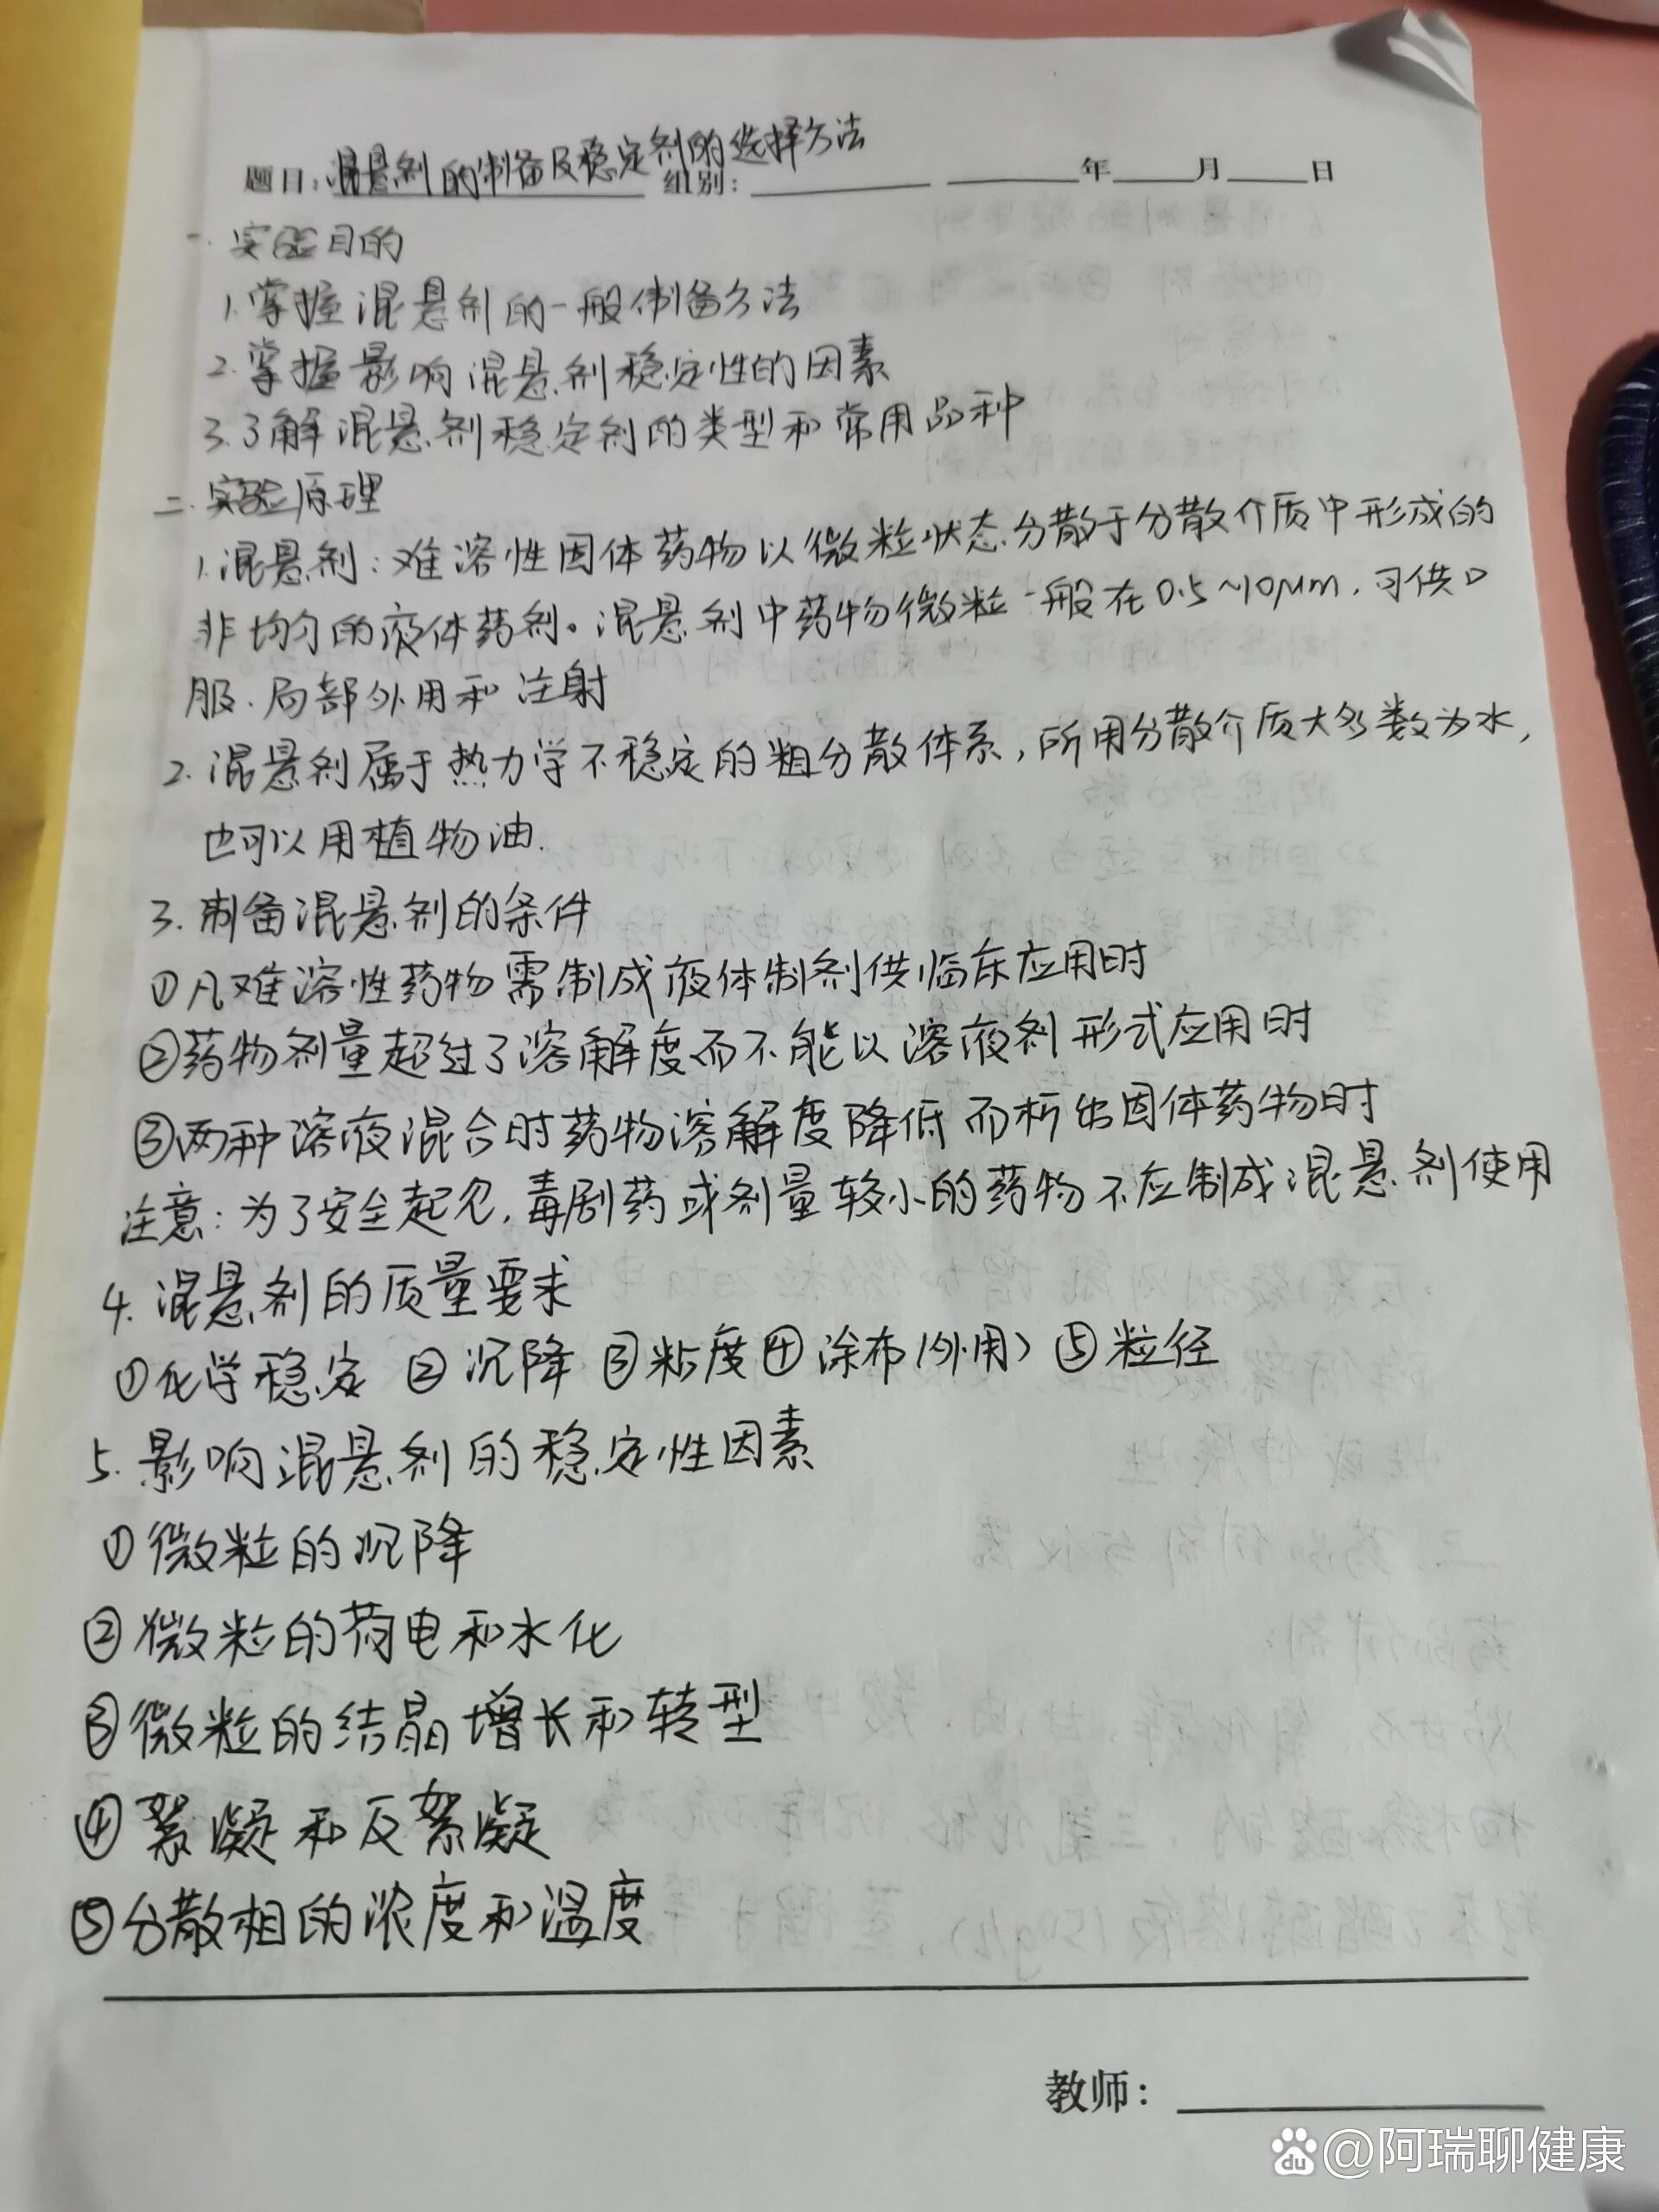 题目：混悬剂的制备及稳定剂的选择方法 组别： 年 月 日
一.实验目的
1.掌握混悬剂的一般制备方法
2.掌握影响混悬剂稳定性的因素
3.了解混悬剂稳定剂的类型和常用品种
二.实验原理
1.混悬剂：难溶性固体药物以微粒状态分散于分散介质中形成的
非均匀的液体药剂。混悬剂中药物微粒一般在0.5~10μm，可供口
服、局部外用和注射
2.混悬剂属于热力学不稳定的粗分散体系，所用分散介质大多数为水，
也可以用植物油.
3.制备混悬剂的条件
①凡难溶性药物需制成液体制剂供临床应用时
②药物剂量超过了溶解度而不能以溶液剂形式应用时
③两种溶液混合时药物溶解度降低而析出固体药物时
注意：为了安全起见，毒剧药或剂量较小的药物不应制成混悬剂使用
4.混悬剂的质量要求
①化学稳定 ②沉降 ③粘度 ④涂布(外用) ⑤粒径
5.影响混悬剂的稳定性因素
①微粒的沉降
②微粒的荷电和水化
③微粒的结晶增长和转型
④絮凝和反絮凝
⑤分散相的浓度和温度
教师：
du @阿瑞聊健康